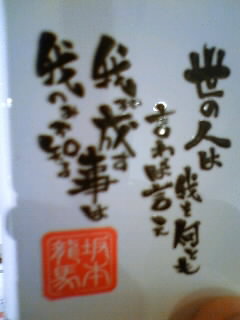 世の人は
我を何とも
言わば言え
我が成す事は
我のみぞ知る
坂本
龍馬